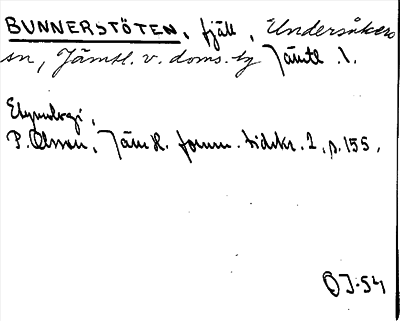 BUNNERSTÖTEN, fjäll, Undersåkers
sn, Jämtl. v. doms. tg Jämtl. l.
Etymologi,
P. Olsson, Jämtl. fornm. tidskr. 2, p. 155.
OJ-54